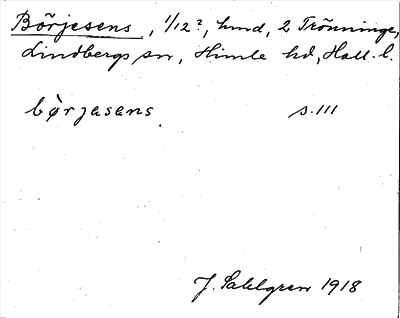 Börjesens, 1/12?, hmd, 2 Trönninge,
Lindbergs sn, Himle hd, Hall. l.
bo᷆rjasans. s. 111
J. Sahlgren 1918